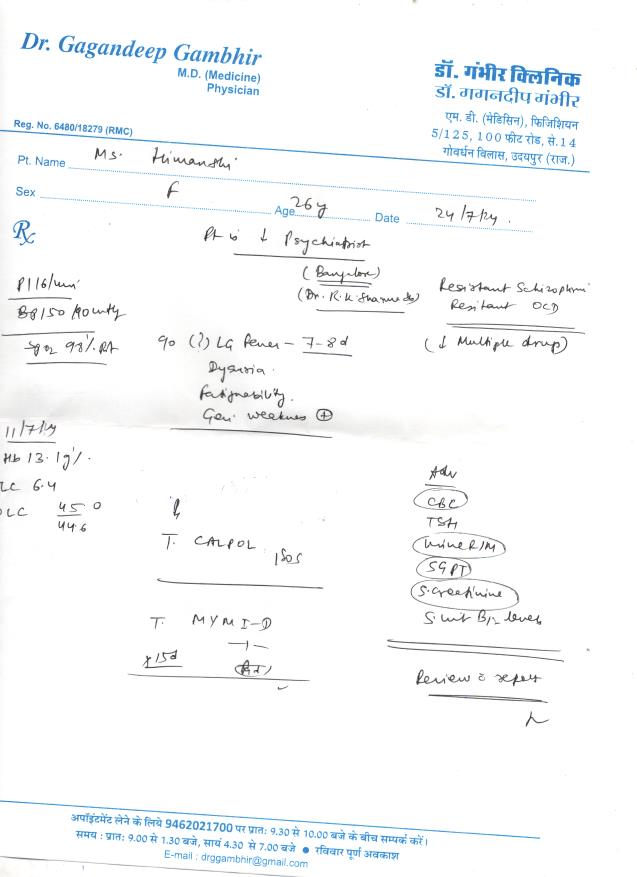 Dr. Gagandeep Gambhir
M.D. (Medicine)
Physician
डॉ. गंभीर क्लिनिक
डॉ. गगनदीप गंभीर
एम. डी. (मेडिसिन), फिजिशियन
5/125, 100 फीट रोड, से.14
गोवर्धन विलास, उदयपुर (राज.)
Reg. No. 6480/18279 (RMC)
Pt. Name Ms. Himanshi
Sex F Age 26y Date 24/7/24.
Rx
Pt is ↓ Psychiatrist
(Bangalore)
(Dr. R.K.
Resistant
Resitant OCD
(↓ Multiple drugs)
P116/min
BP150/90
SPO2 98% RA
LG fever - 7-8d
Dysuria.
Fatiguability.
Gen. weaknes ⊕
11/7/24
Hb 13.1g%.
LC 6.4
DLC 45
44.6
Adv
CBC
TSH
Urine R/M
SGPT
S.Creatinine
S.vit B12 levels
T. CALPOL
1 SOS
T. MYMI-D
-1-
x15d
Review c report
अपॉइंटमेंट लेने के लिये 9462021700 पर प्रात: 9.30 से 10.00 बजे के बीच सम्पर्क करें।
समय : प्रात: 9.00 से 1.30 बजे, सायं 4.30 से 7.00 बजे ● रविवार पूर्ण अवकाश
E-mail : drggambhir@gmail.com